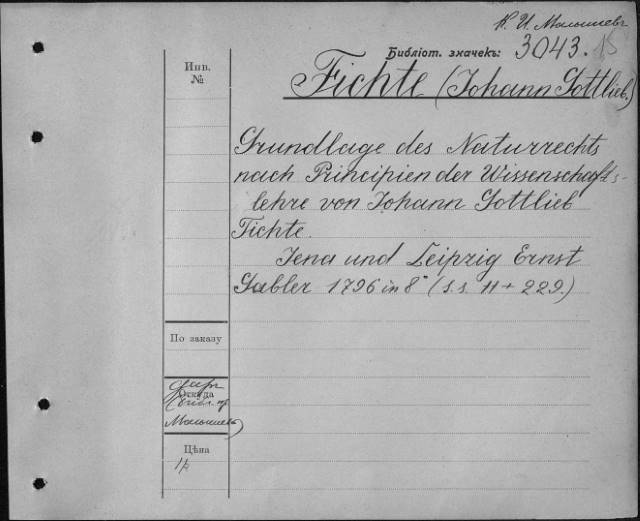 К. И. Малышевъ
Библіот. значекъ: 3043. 15
Инв.
№
Fichte (Johann Gottlieb.)
Grundlage des Naturrechts
nach Principien der Wissenschafts-
lehre von Johann Gottlieb
Fichte.
Jena und Leipzig Ernst
Gabler 1796 in 8° (s.s. 11 + 229.)
По заказу
Откуда
Малышевъ)
Цѣна